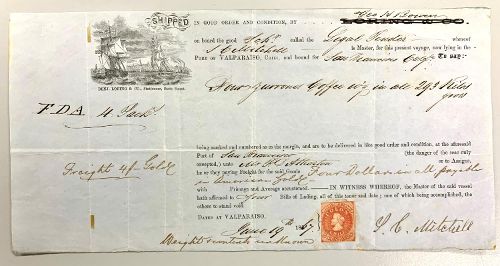 SHIPPED
IN GOOD ORDER AND CONDITION, BY Geo H Bowen
LORING & CO.
on board the good Sch called the Legal Tender whereof
S C Mitchell is Master, for this present voyage, now lying in the
PORT OF VALPARAISO, CHILI, and bound for San Francisco Cal To say:
BENJ. LORING & CO., Stationers, State Street.
Four Coffee in all 293 Kilos
gross
F.D.A 4 Sacks
being marked and numbered as in the margin, and are to be delivered in like good order and condition, at the aforesaid
Port of San Francisco (the danger of the seas only
excepted,) unto or to Assigns,
Freight 4$ Gold
he or they paying Freight for the said Goods Four Dollars in all payable
in American Gold
with Primage and Average accustomed. IN WITNESS WHEREOF, the Master of the said vessel
hath affirmed to Four Bills of Lading, all of this tenor and date; one of which being accomplished, the
others to stand void.
DATED AT VALPARAISO. June 19th 67
Weight & contents unknown
S. C. Mitchell